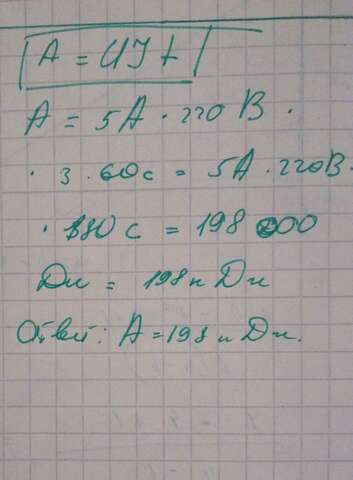 A = UIt
A = 5A · 220 В ·
· 3 · 60с = 5A · 220В ·
· 180 с = 198 000
Дж = 198 к Дж
Ответ: A = 198 к Дж.